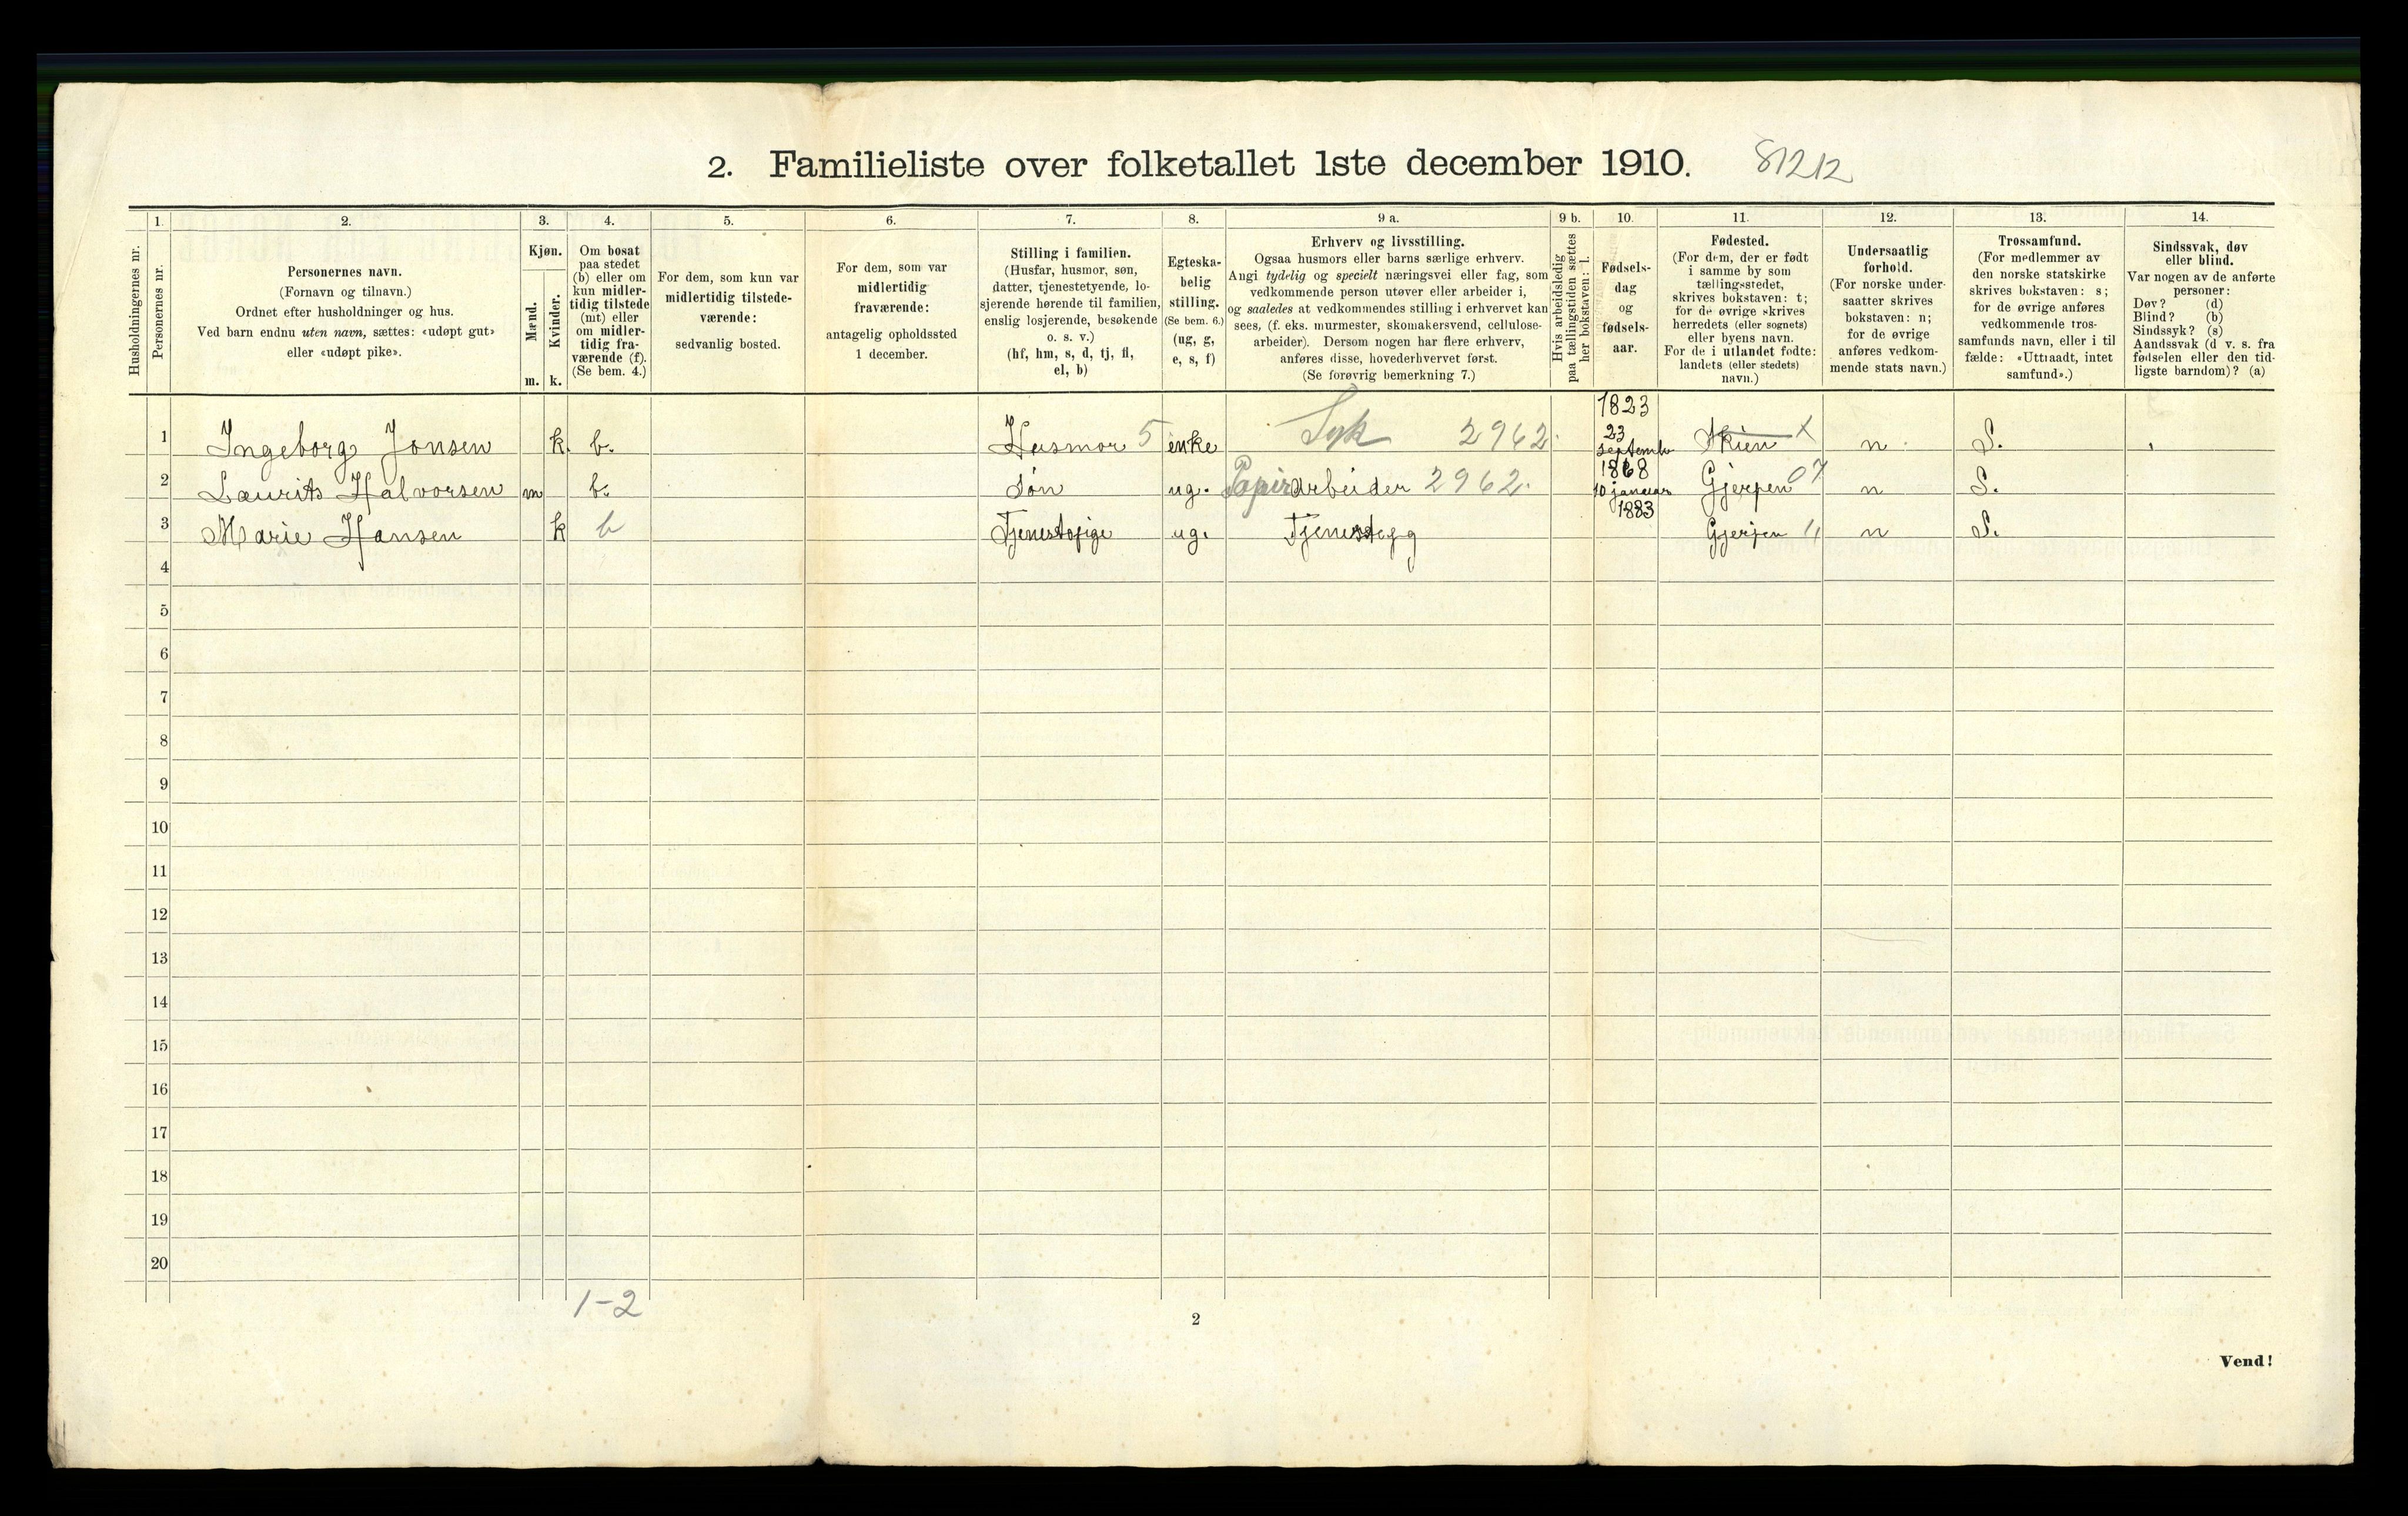 2. Familieliste over folketallet 1ste december 1910. 81212
Husholdningernes nr.
1. Personernes nr.
2. Personernes navn.
(Fornavn og tilnavn.)
Ordnet efter husholdninger og hus.
Ved barn endnu uten navn, sættes: «udøpt gut»
eller «udøpt pike».
3. Kjøn.
Mænd. m.
Kvinder. k.
4. Om bosat
paa stedet
(b) eller om
kun midler-
tidig tilstede
(mt) eller
om midler-
tidig fra-
værende (f).
(Se bem. 4.)
5. For dem, som kun var
midlertidig tilstede-
værende:
sedvanlig bosted.
6. For dem, som var
midlertidig
fraværende:
antagelig opholdssted
1 december.
7. Stilling i familien.
(Husfar, husmor, søn,
datter, tjenestetyende, lo-
sjerende hørende til familien,
enslig losjerende, besøkende
o. s. v.)
(hf, hm, s, d, tj, fl,
el, b)
8. Egteska-
belig
stilling.
(Se bem. 6.)
(ug, g,
e, s, f)
9 a. Erhverv og livsstilling.
Ogsaa husmors eller barns særlige erhverv.
Angi tydelig og specielt næringsvei eller fag, som
vedkommende person utøver eller arbeider i,
og saaledes at vedkommendes stilling i erhvervet kan
sees, (f. eks. murmester, skomakersvend, cellulose-
arbeider). Dersom nogen har flere erhverv,
anføres disse, hovederhvervet først.
(Se forøvrig bemerkning 7.)
9 b. Hvis arbeidsledig
paa tællingstiden sættes
her bokstaven: l.
10. Fødsels-
dag
og
fødsels-
aar.
11. Fødested.
(For dem, der er født
i samme by som
tællingsstedet,
skrives bokstaven: t;
for de øvrige skrives
herredets (eller sognets)
eller byens navn.
For de i utlandet fødte:
landets (eller stedets)
navn.)
12. Undersaatlig
forhold.
(For norske under-
saatter skrives
bokstaven: n;
for de øvrige
anføres vedkom-
mende stats navn.)
13. Trossamfund.
(For medlemmer av
den norske statskirke
skrives bokstaven: s;
for de øvrige anføres
vedkommende tros-
samfunds navn, eller i til
fælde: «Uttraadt, intet
samfund».)
14. Sindssvak, døv
eller blind.
Var nogen av de anførte
personer:
Døv? (d)
Blind? (b)
Sindssyk? (s)
Aandssvak (d v. s. fra
fødselen eller den tid-
ligste barndom)? (a)
1 Ingeborg Jonsen k. b. Husmor 5 enke Syk 2962 1823 23 septemb Skien X n S.
2 Laurits Halvorsen m b. Søn ug. Papirarbeider 2962. 1868 10 januar Gjerpen 07 n S.
3 Marie Hansen k b Tjenestepige ug. 1883 Gjerpen n S.
4
5
6
7
8
9
10
11
12
13
14
15
16
17
18
19
20
1-2
2
Vend!